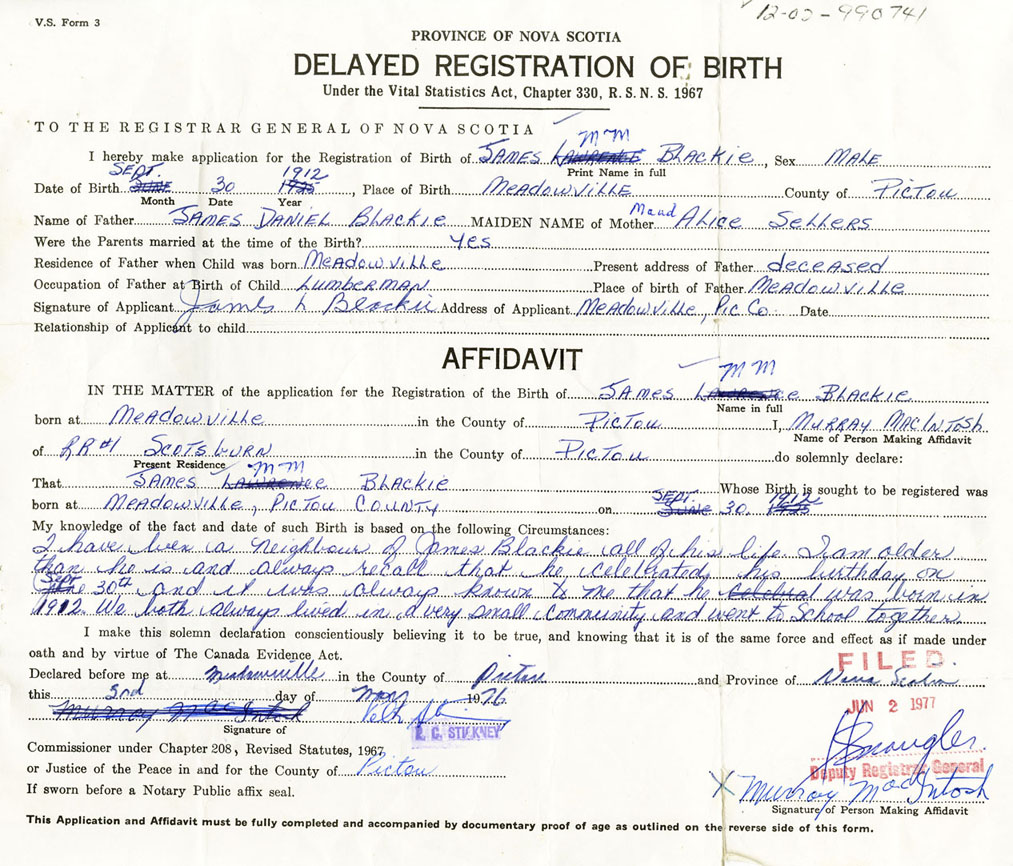 V.S. Form 3
12-02-990741
PROVINCE OF NOVA SCOTIA
DELAYED REGISTRATION OF BIRTH
Under the Vital Statistics Act, Chapter 330, R.S.N.S. 1967
TO THE REGISTRAR GENERAL OF NOVA SCOTIA
MM
I hereby make application for the Registration of Birth of JAMES LAWRENCE BLACKIE, Sex MALE
Print Name in full
SEPT. 1912
Date of Birth JUNE 30 1925, Place of Birth MEADOWVILLE County of PICTOU
Month Date Year
Name of Father JAMES DANIEL BLACKIE MAIDEN NAME of Mother Maud ALICE SELLERS
Were the Parents married at the time of the Birth? YES
Residence of Father when Child was born MEADOWVILLE Present address of Father deceased
Occupation of Father at Birth of Child LUMBERMAN Place of birth of Father MEADOWVILLE
Signature of Applicant James L Blackie Address of Applicant MEADOWVILLE, PIC Co Date
Relationship of Applicant to child
AFFIDAVIT
MM
IN THE MATTER of the application for the Registration of the Birth of JAMES LAWRENCE BLACKIE
Name in full
born at MEADOWVILLE in the County of PICTOU I, MURRAY MACINTOSH
Name of Person Making Affidavit
of RR #1 SCOTSBURN in the County of PICTOU do solemnly declare:
Present Residence
MM
That JAMES LAWRENCE BLACKIE Whose Birth is sought to be registered was
SEPT. 1912
born at MEADOWVILLE, PICTOU COUNTY on JUNE 30, 1925
My knowledge of the fact and date of such Birth is based on the following Circumstances:
I have been a neighbour of James Blackie all of his life. I am older
than he is and always recall that he celebrated his birthday on
Sept
30th and it was always known to me that he was born in
1912. We both always lived in a very small community and went to School together
I make this solemn declaration conscientiously believing it to be true, and knowing that it is of the same force and effect as if made under
oath and by virtue of The Canada Evidence Act.
FILED.
Declared before me at Meadowville in the County of Pictou and Province of Nova Scotia
this 3rd day of May 1976
JUN 2 1977
Murray MacIntosh
R. C. STICKNEY
Signature of
Commissioner under Chapter 208, Revised Statutes, 1967
or Justice of the Peace in and for the County of Pictou
Deputy Registrar General
If sworn before a Notary Public affix seal.
X Murray MacIntosh
Signature of Person Making Affidavit
This Application and Affidavit must be fully completed and accompanied by documentary proof of age as outlined on the reverse side of this form.